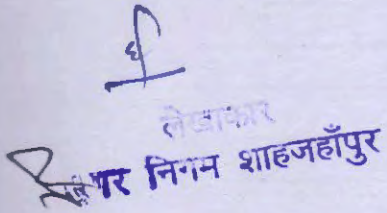 लेखाकार
नगर निगम शाहजहाँपुर